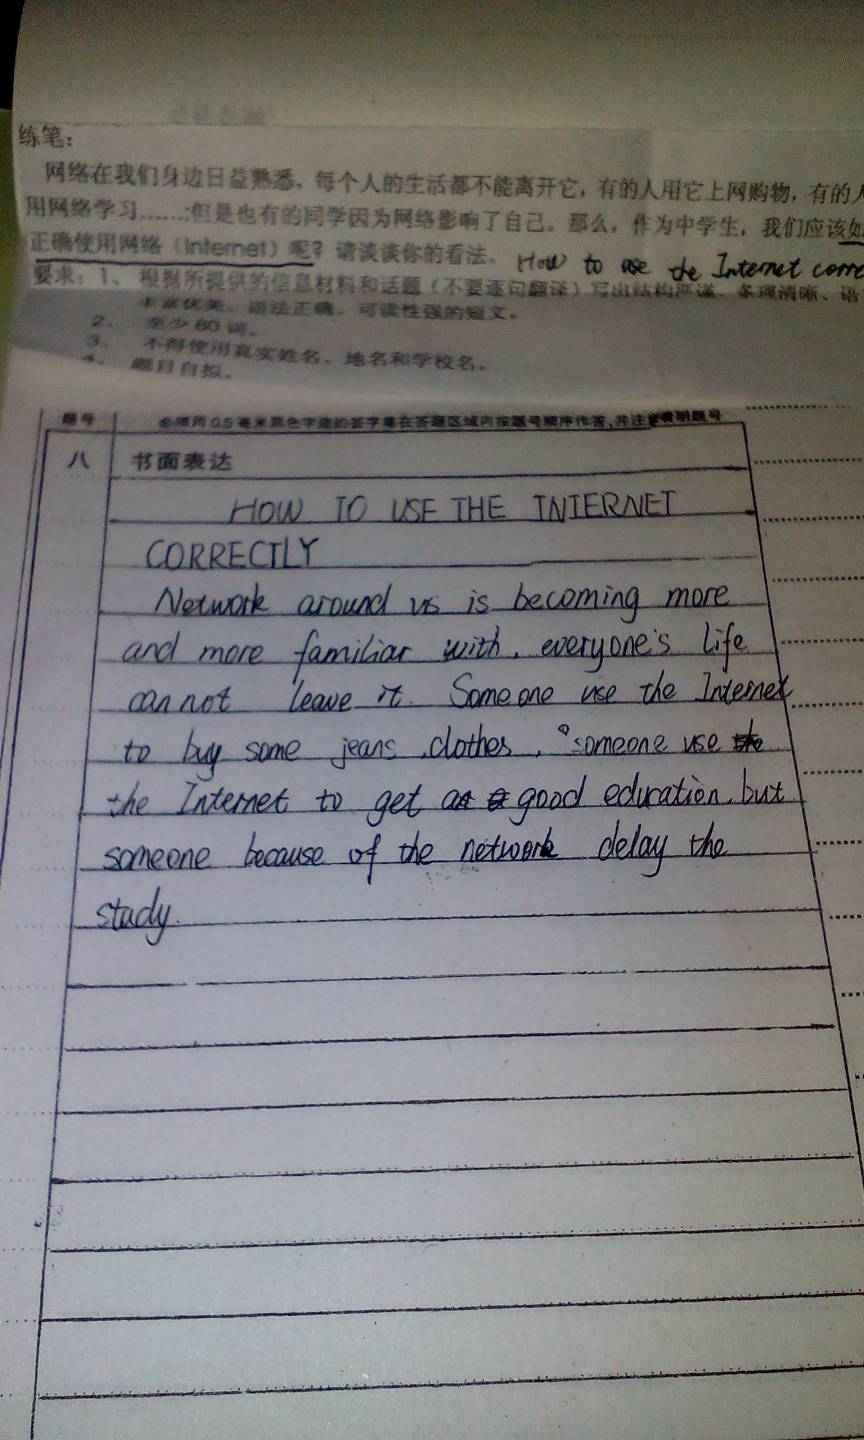 练笔：
网络在我们身边日益熟悉，每个人的生活都不能离开它，有的人用它上网购物，有的人
用网络学习……;但是也有的同学因为网络影响了自己。那么，作为中学生，我们应该如
正确使用网络（Internet）呢？请谈谈你的看法。 How to use the Internet corre
要求：1、 根据所提供的信息材料和话题（不要逐句翻译）写出结构严谨、条理清晰、语
丰富优美、语法正确、可读性强的短文。
2、 至少 80 词。
3、 不得使用真实姓名、地名和学校名。
4、 题目自拟。
题号 必须用 0.5 毫米黑色字迹的签字笔在答题区域内按题号顺序作答，并注意看明题号
八 书面表达
HOW TO USE THE INTERNET
CORRECTLY
Network around us is becoming more
and more familiar with, everyone's life
can not leave it. Someone use the Internet
to buy some jeans, clothes, someone use the
the Internet to get a good education, but
someone because of the network delay the
study.